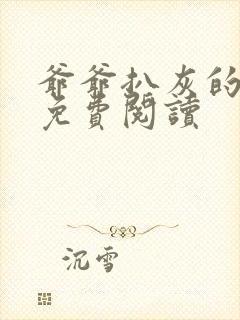 爺爺扒灰的
免費閱讀
沉雪